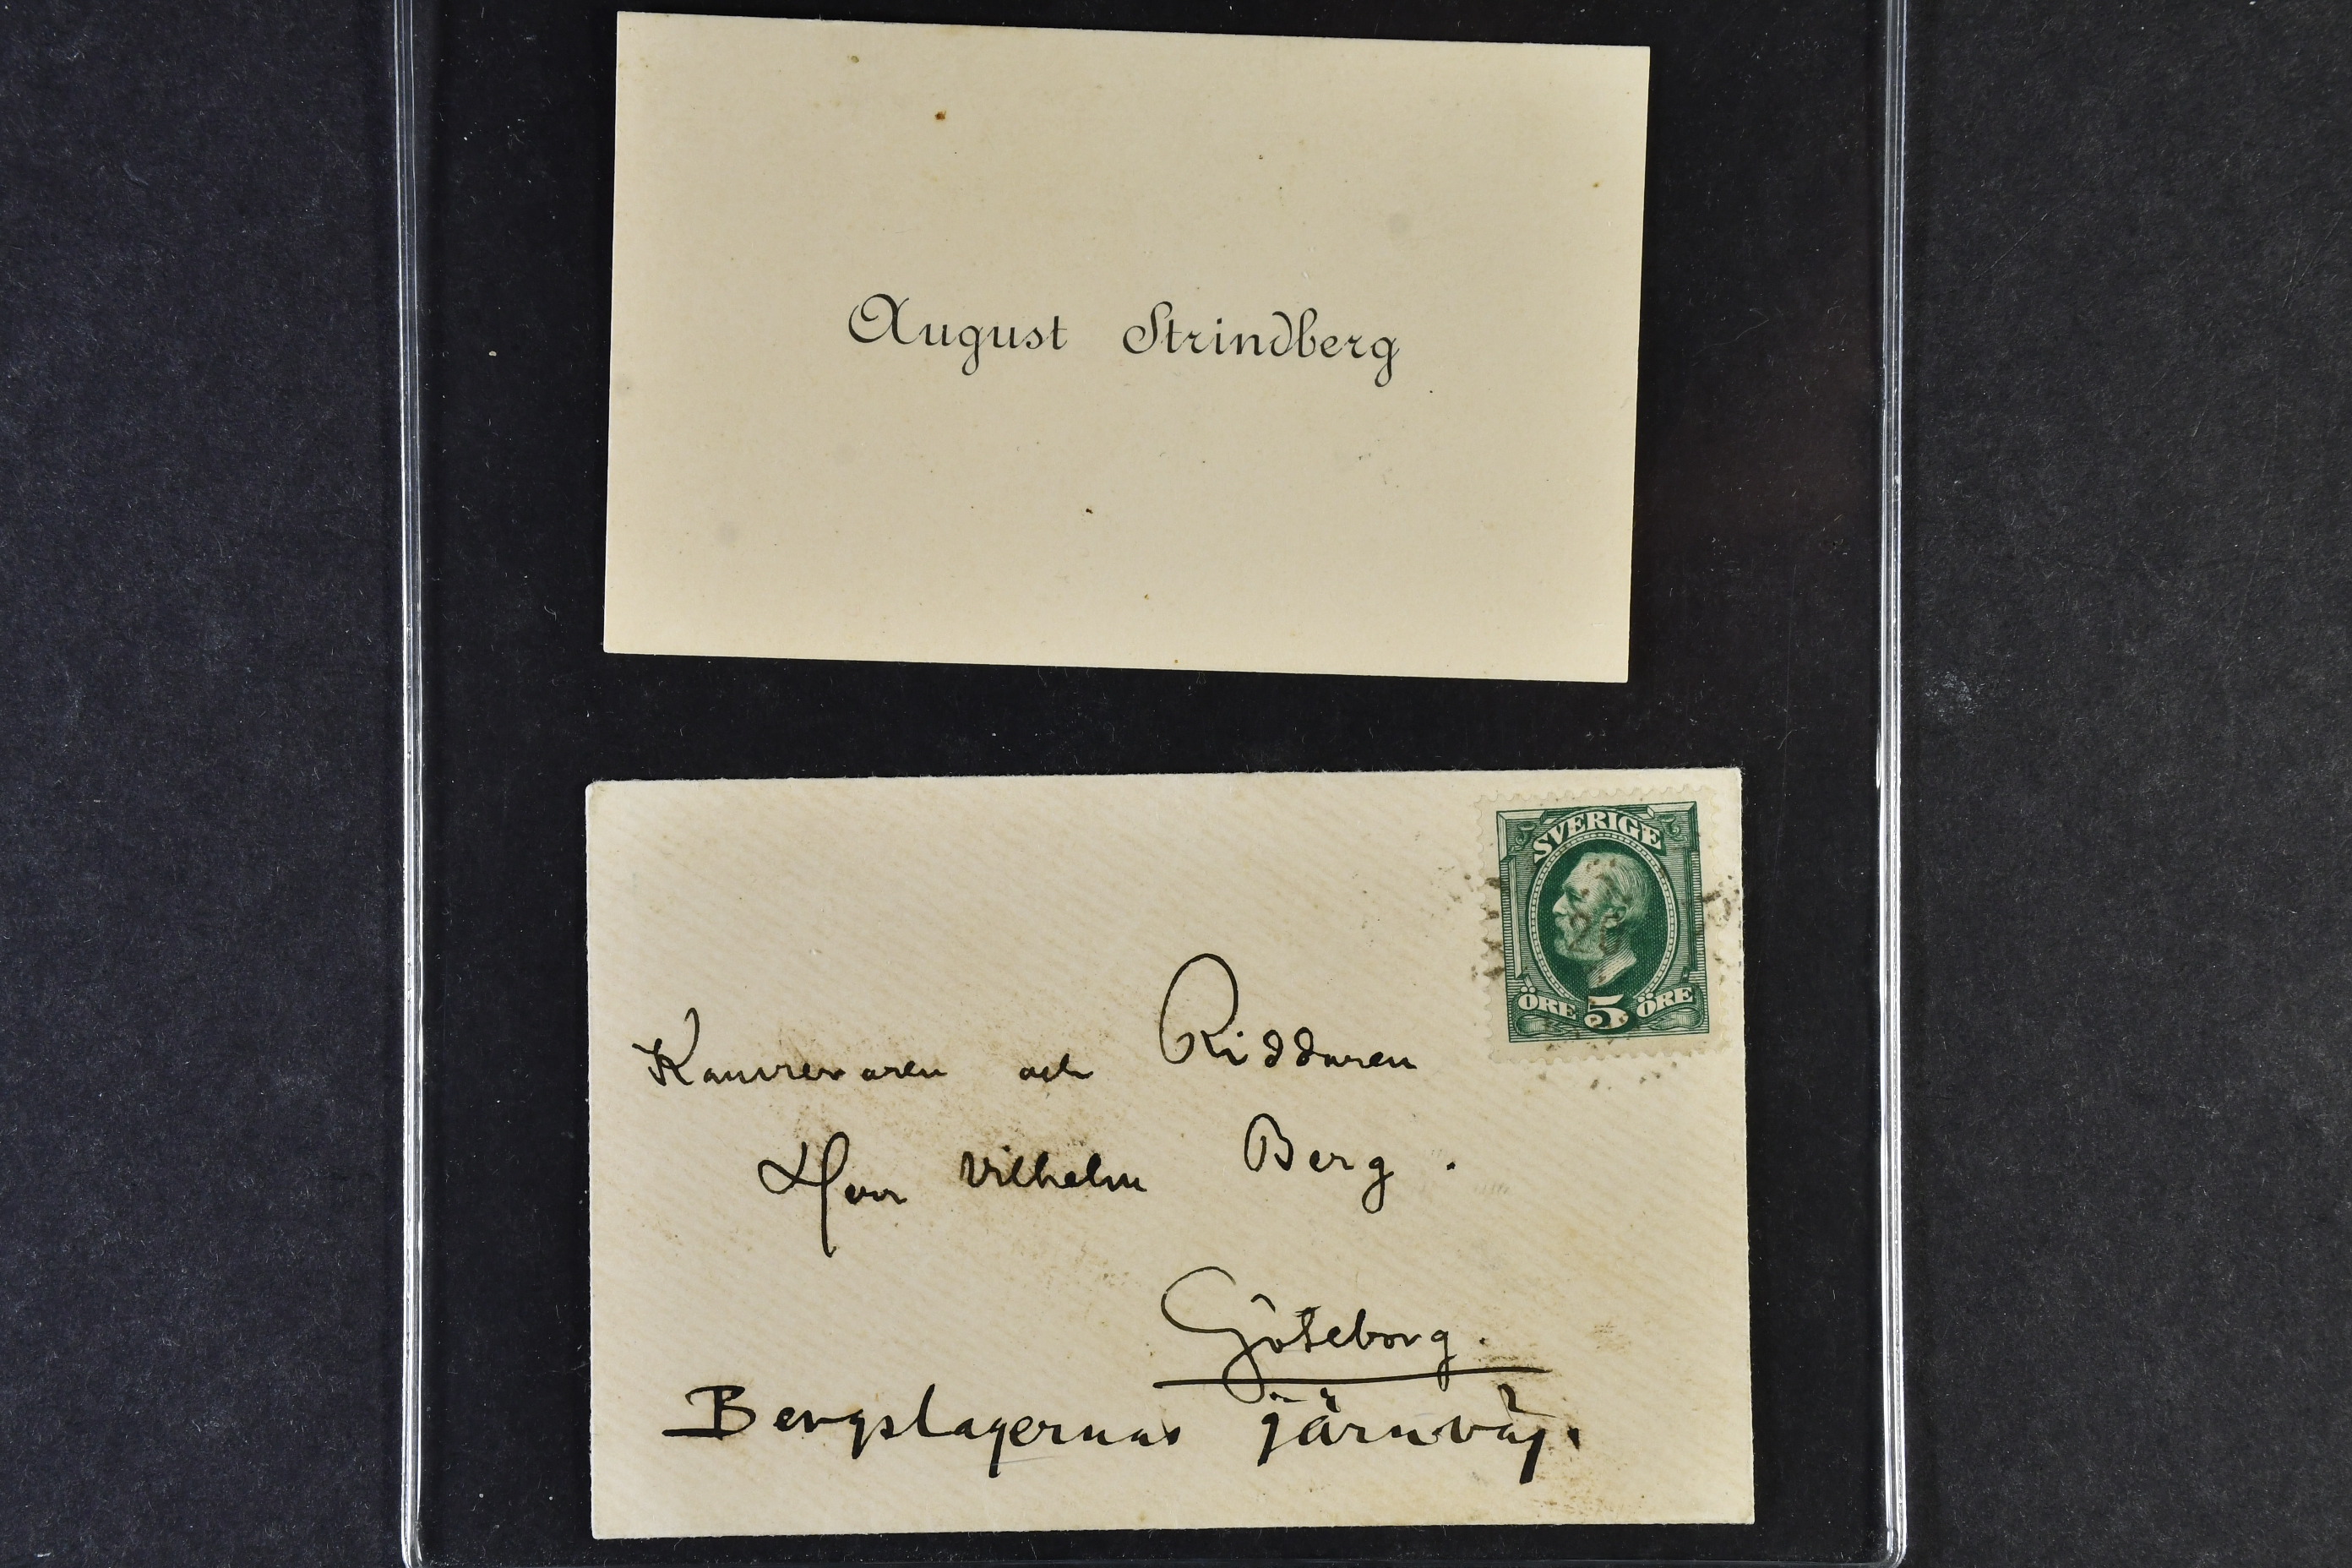 August Strindberg
SVERIGE
ÖRE 5 ÖRE
Kamreraren och Riddaren
Herr Vilhelm Berg.
Göteborg.
Bergslagernas järnväg.